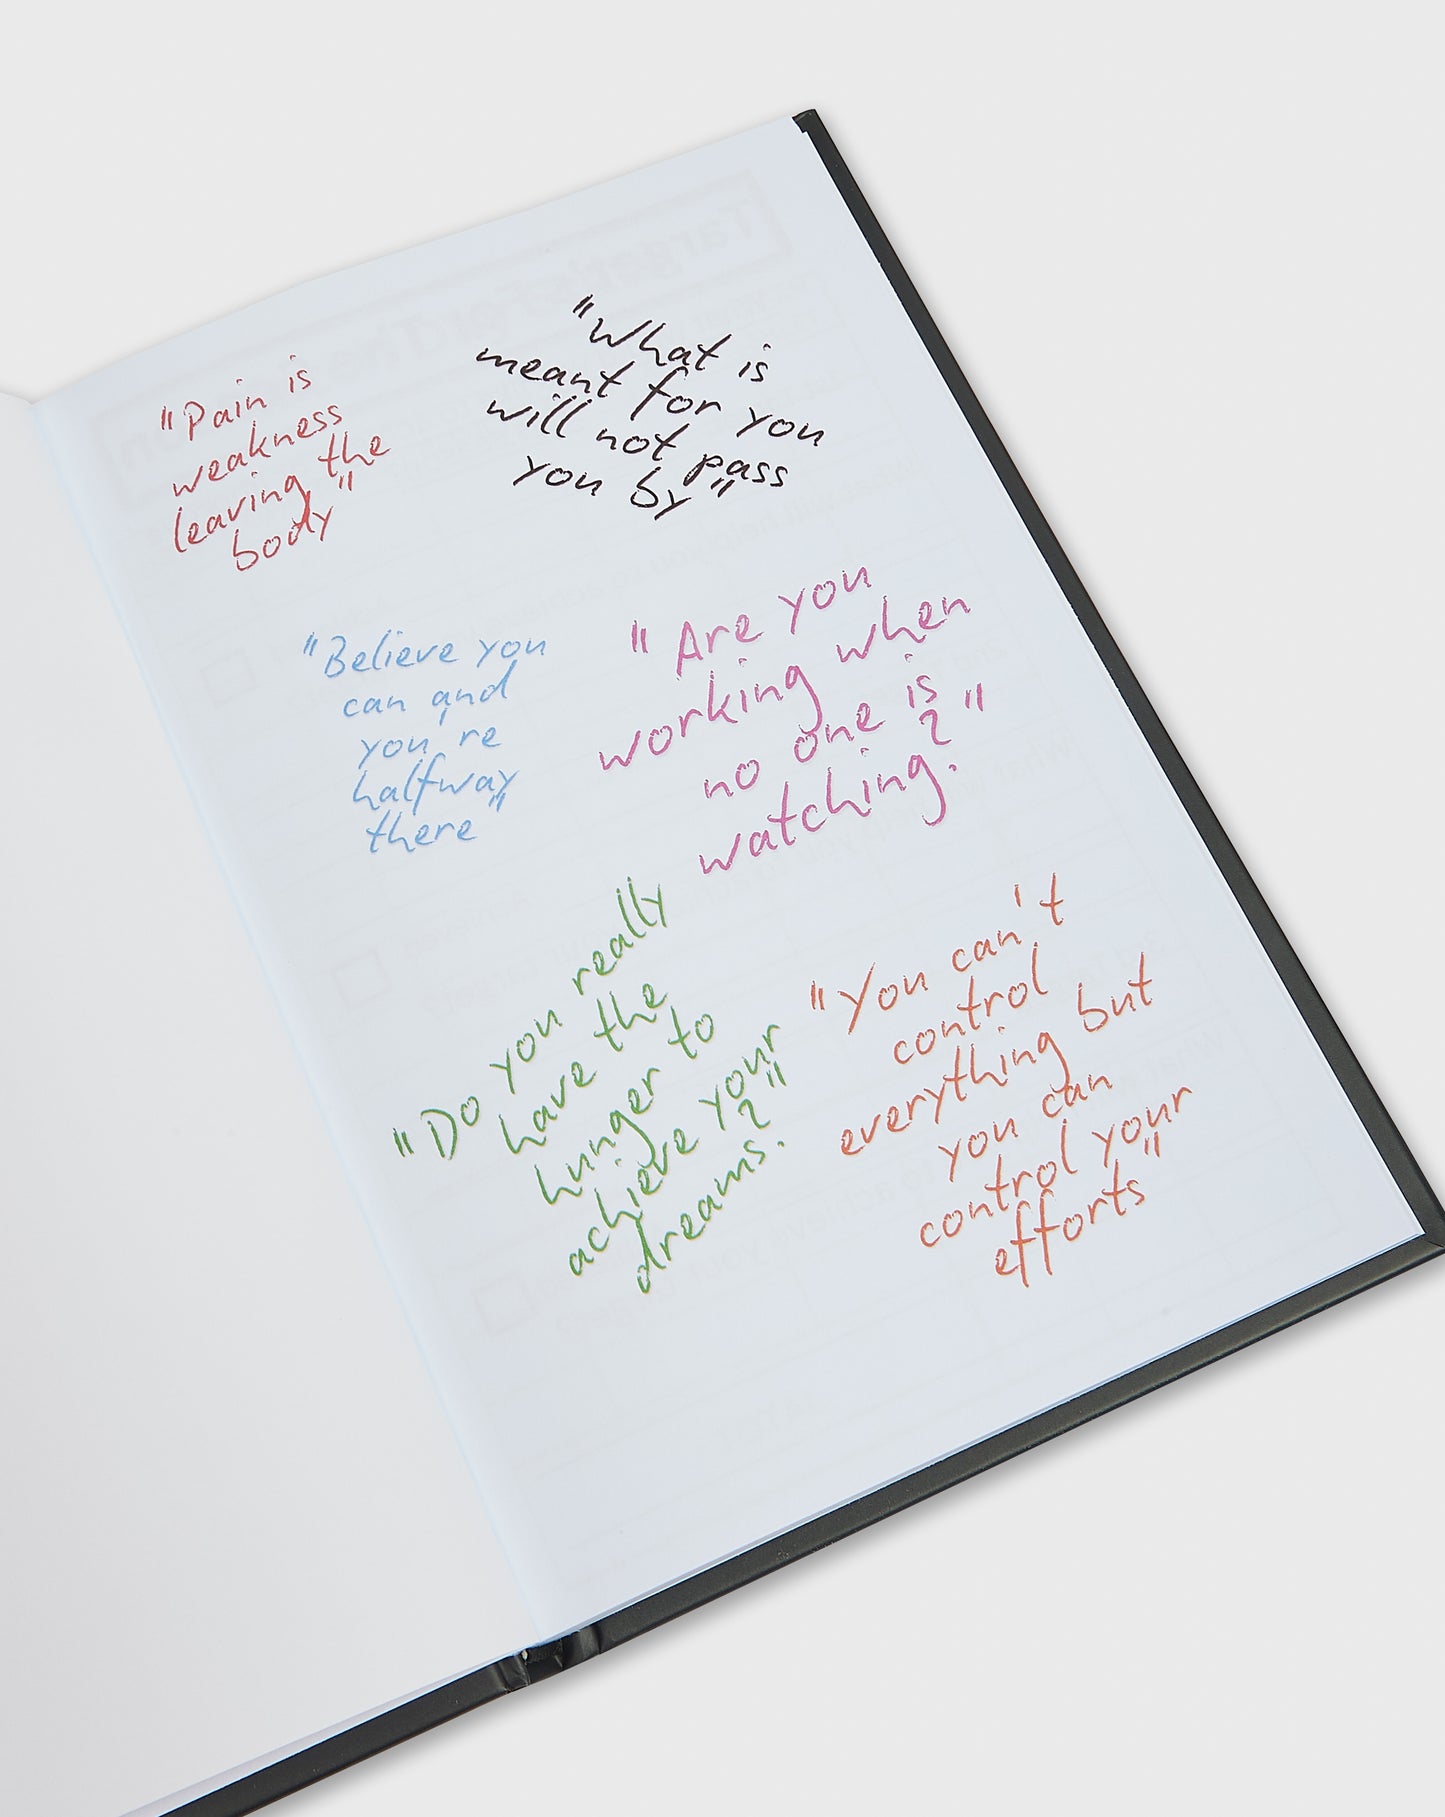 "Pain is
weakness
leaving the
body"
"What is
meant for you
will not pass
you by"
"Believe you
can and
you're
halfway
there"
"Are you
working when
no one is
watching?"
"Do you really
have the
hunger to
achieve your
dreams?"
"You can't
control
everything but
you can
control your
efforts"